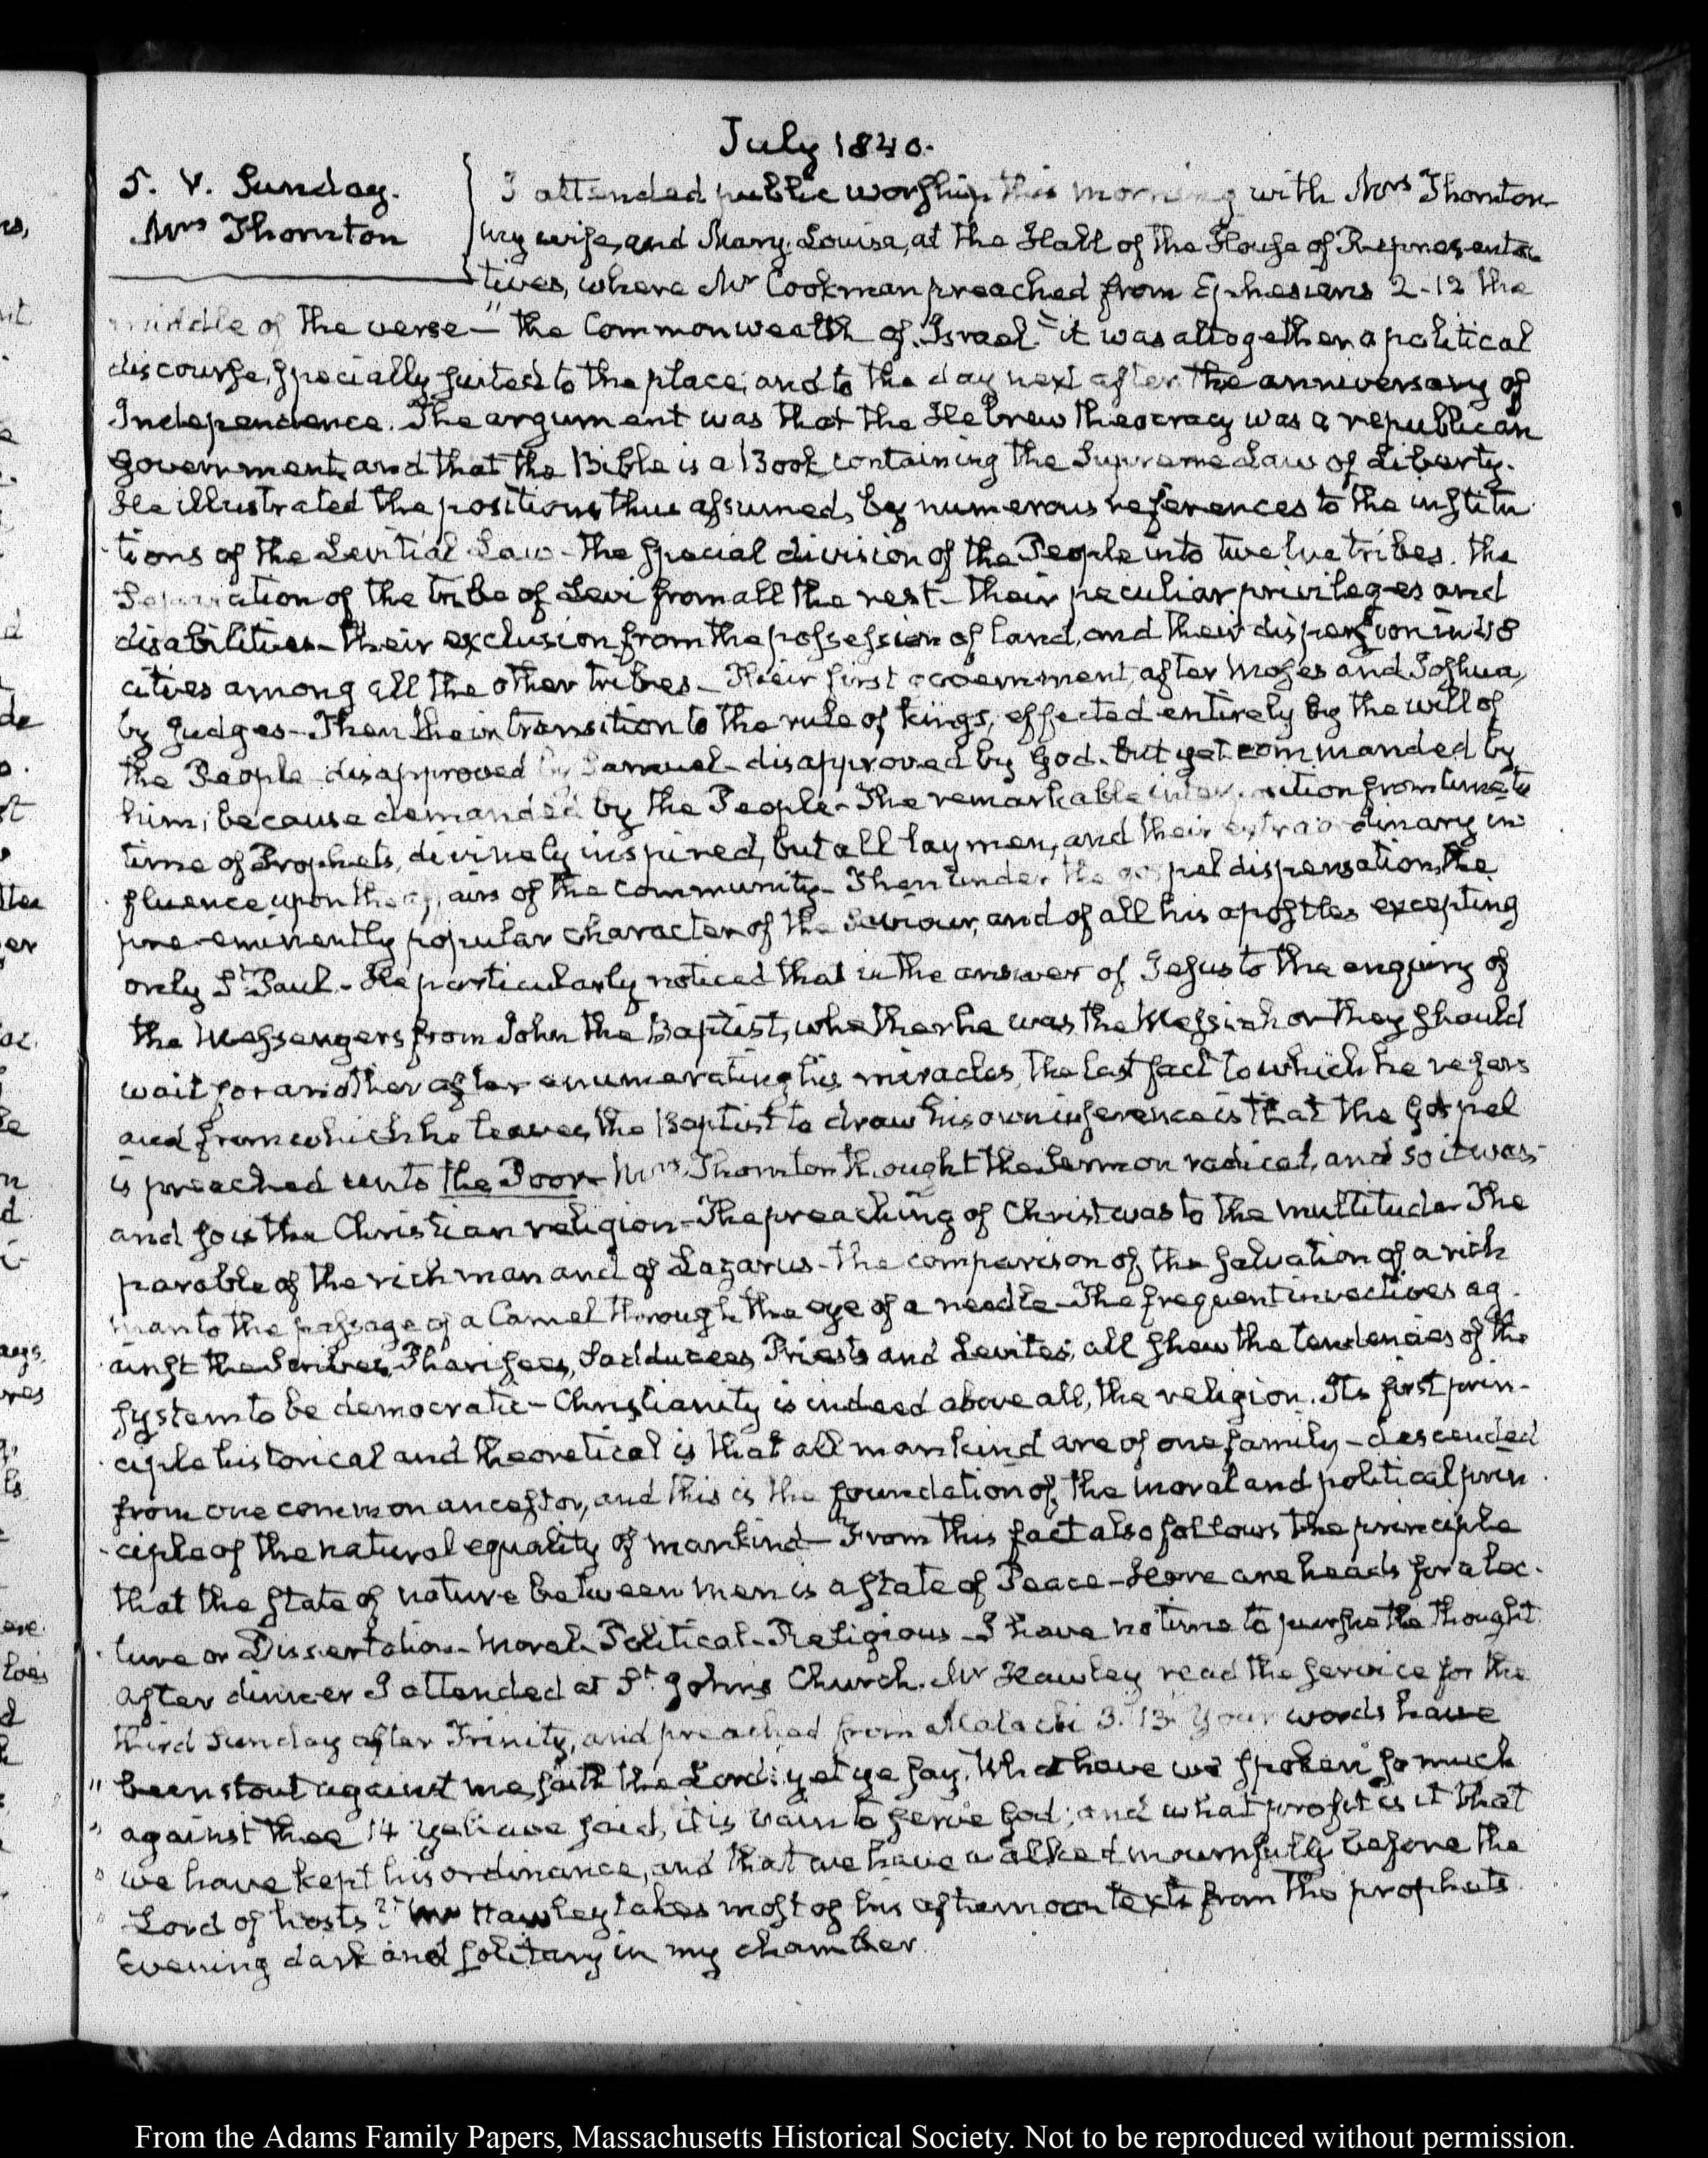 July 1840.
5. V. Sunday.
Mrs Thornton
I attended public worship this morning with Mrs Thornton
my wife, and Mary Louisa, at the Hall of the House of Representa-
tives, where Mr Cookman preached from Ephesians 2-12 the
middle of the verse—"the Commonwealth of Israel" it was altogether a political
discourse, specially suited to the place, and to the day next after the anniversary of
Independence. The argument was that the Hebrew theocracy was a republican
government, and that the Bible is a Book containing the Supreme Law of Liberty.
He illustrated the positions thus assumed, by numerous references to the institu
tions of the Levitial Law - the special division of the People into twelve tribes. the
Separation of the tribe of Levi from all the rest - their peculiar privileges and
disabilities - their exclusion from the possession of land, and their dispersion in 48
cities among all the other tribes - Their first government, after Moses and Joshua,
by Judges - Then their transition to the rule of kings, effected entirely by the will of
the People disapproved by Samuel - disapproved by God - but yet commanded by
him, because demanded by the People - The remarkable interposition from time to
time of Prophets, divinely inspired, but all laymen, and their extraordinary in
fluence upon the affairs of the community - Then under the gospel dispensation, the
pre-eminently popular character of the Saviour, and of all his apostles excepting
only St Paul - He particularly noticed that in the answer of Jesus to the enquiry of
the Messengers from John the Baptist, whether he was the Messiah or they should
wait for another after enumerating his miracles, the last fact to which he refers
and from which he leaves the Baptist to draw his own inference is that the Gospel
is preached unto the Poor - Mrs Thornton thought the Sermon radical, and so it was -
and so is the Christian religion - The preaching of Christ was to the multitude - The
parable of the rich man and of Lazarus - the comparison of the salvation of a rich
man to the passage of a Camel through the eye of a needle - The frequent invectives ag-
ainst the Scribes, Pharisees, Sadducees, Priests and Levites, all shew the tendencies of the
system to be democratic - Christianity is indeed above all, the religion. Its first prin-
ciple historical and theoretical is that all mankind are of one family - descended
from one common ancestor, and this is the foundation of the moral and political prin
ciple of the natural equality of mankind - From this fact also follows the principle
that the state of nature between men is a state of Peace - Here are heads for a lec-
ture or Dissertation - Moral - Political - Religious - I have no time to pursue the thought
After dinner I attended at St. John's Church. Mr Hawley read the service for the
third Sunday after Trinity, and preached from Malachi 3. 13. Your words have
" been stout against me, saith the Lord: yet ye say, What have we spoken so much
" against thee 14 Ye have said, it is vain to serve God; and what profit is it that
" we have kept his ordinance, and that we have walked mournfully before the
" Lord of hosts?" Mr Hawley takes most of his afternoon texts from the prophets.
Evening dark and solitary in my chamber
From the Adams Family Papers, Massachusetts Historical Society. Not to be reproduced without permission.